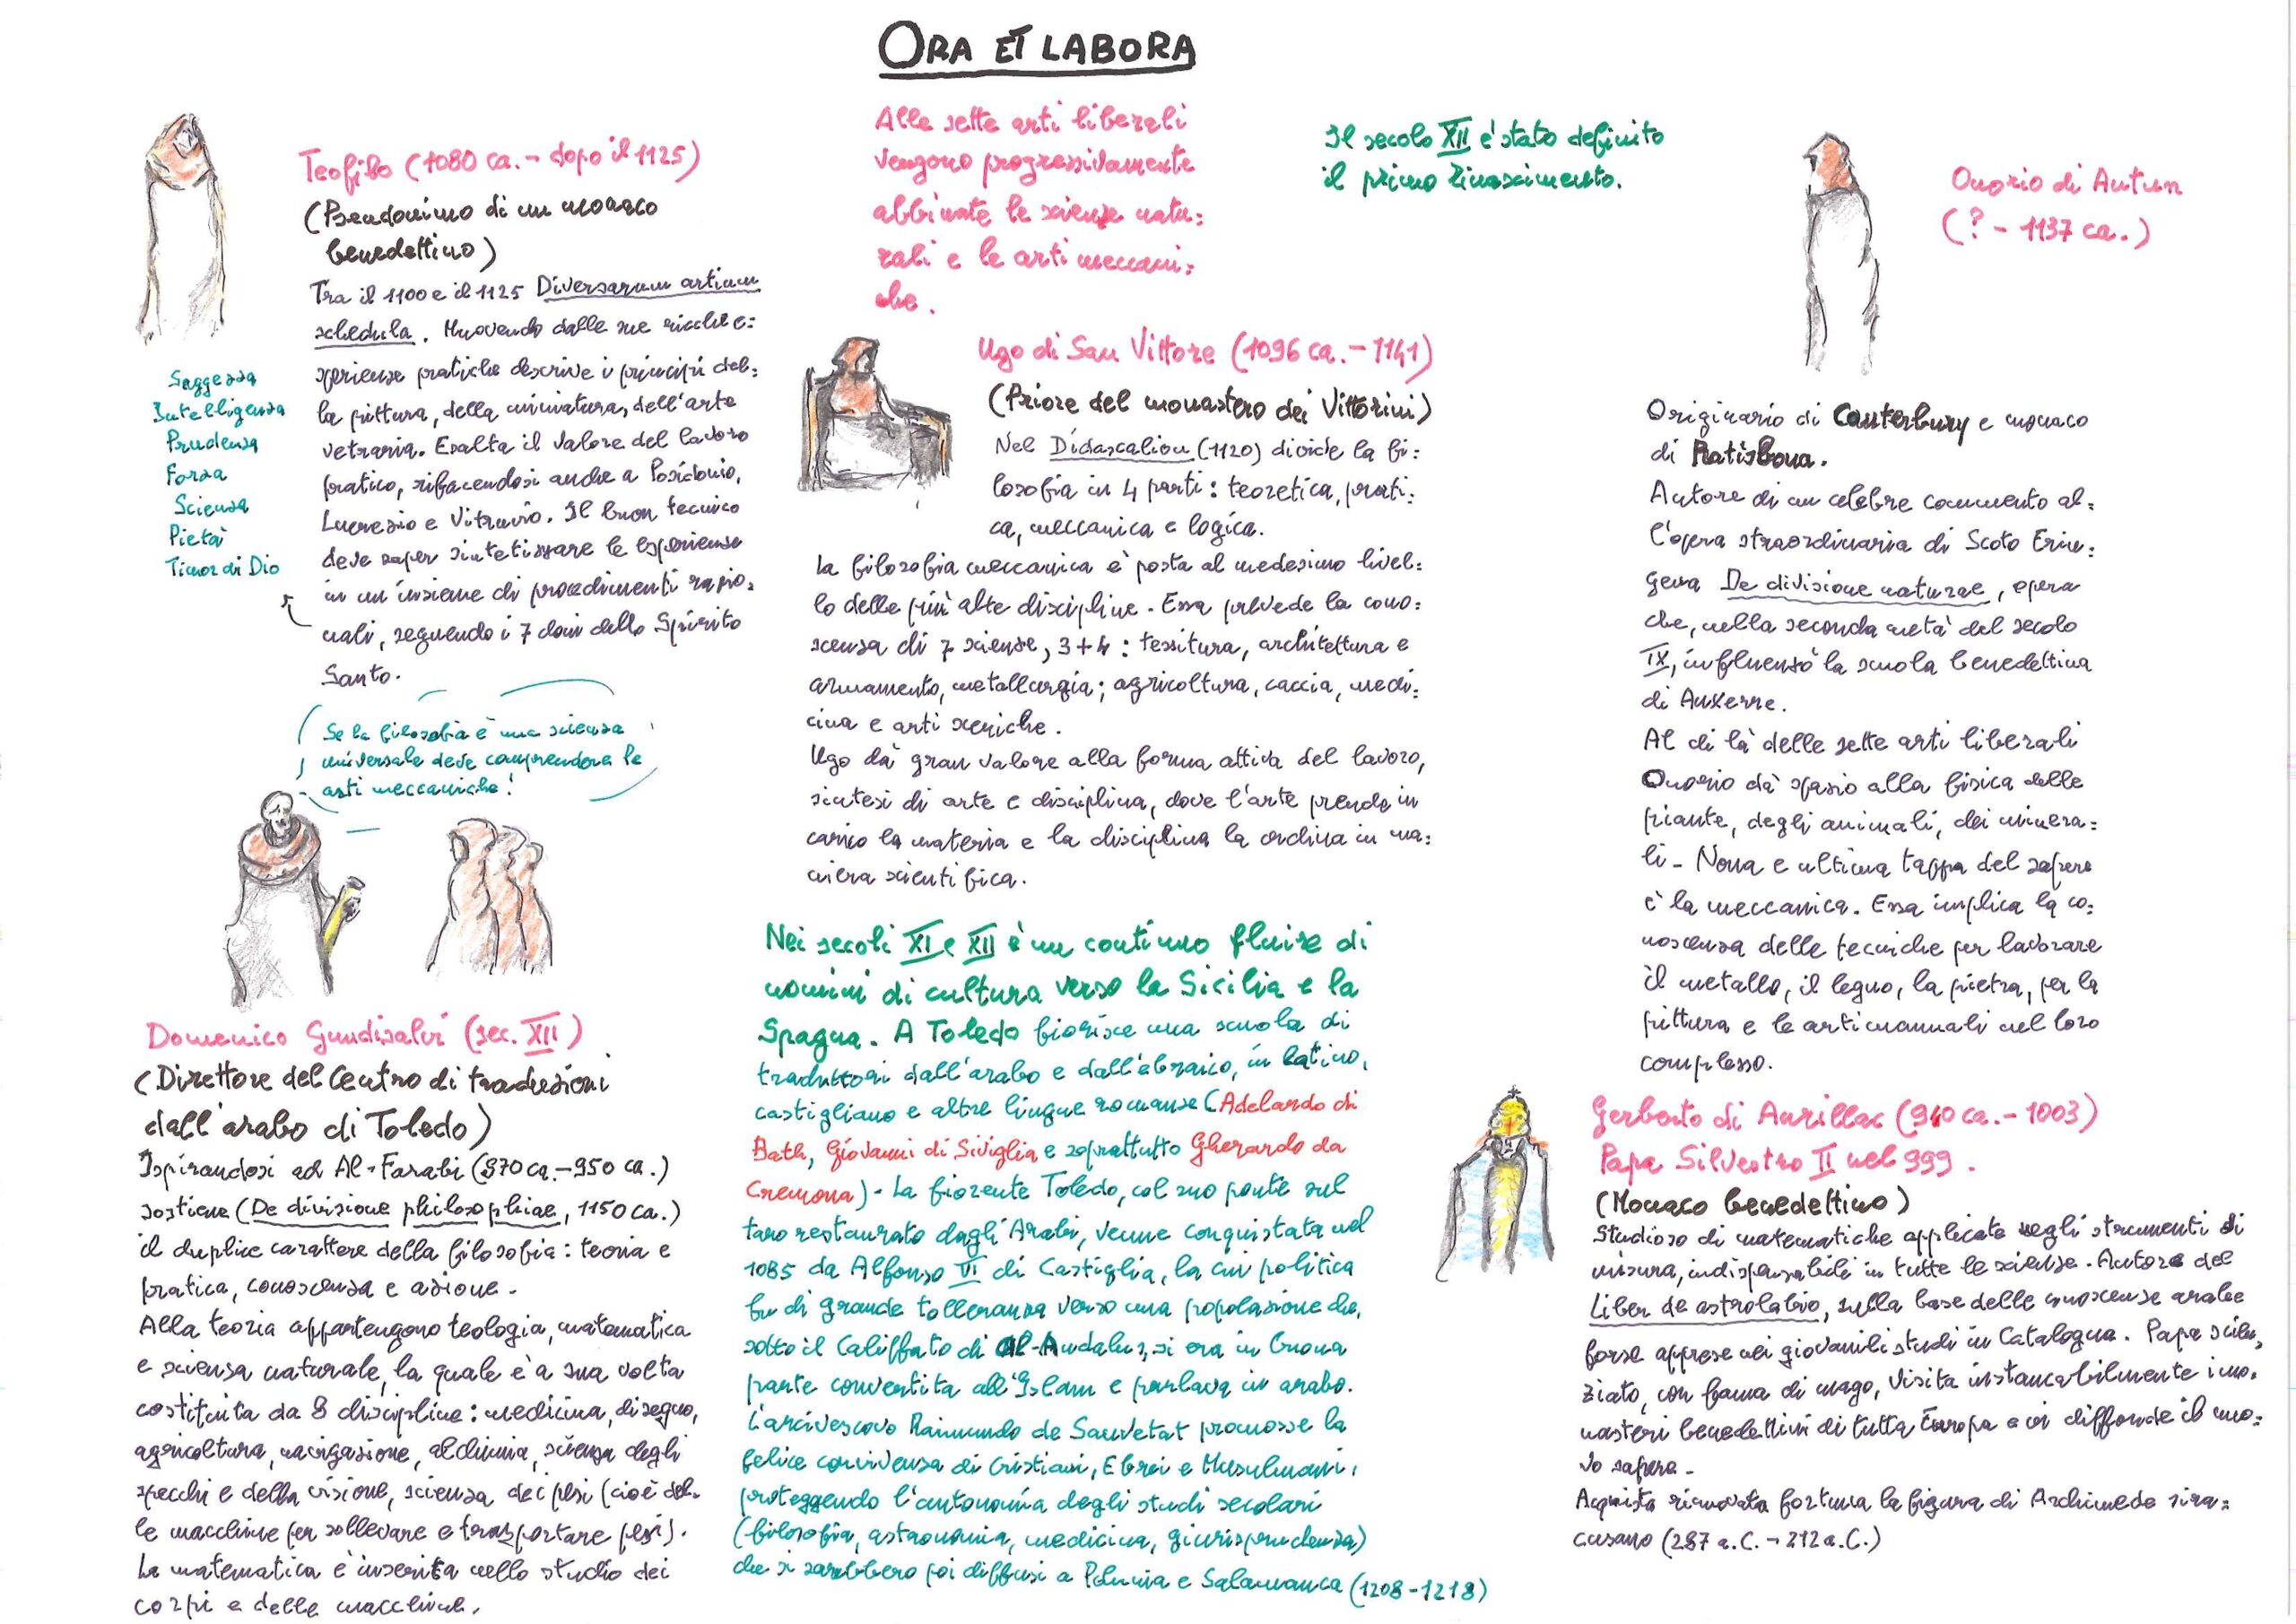 ORA ET LABORA
Teofilo (1080 ca. - dopo il 1125)
(Pseudonimo di un monaco
benedettino)
Tra il 1100 e il 1125 Diversarum artium
schedula. Muovendo dalle sue ricche e=
sperienze pratiche descrive i principi del=
la pittura, della miniatura, dell'arte
vetraria. Esalta il valore del lavoro
pratico, rifacendosi anche a Posidonio,
Lucrezio e Vitruvio. Il buon tecnico
deve saper sintetizzare le esperienze
in un insieme di procedimenti razio=
nali, seguendo i 7 doni dello Spirito
Santo.
Saggezza
Intelligenza
Prudenza
Forza
Scienza
Pietà
Timor di Dio
Se la filosofia è una scienza
universale deve comprendere le
arti meccaniche!
Domenico Gundisalvi (sec. XII)
(Direttore del Centro di traduzioni
dall'arabo di Toledo)
Ispirandosi ad Al-Farabi (870 ca. - 950 ca.)
sostiene (De divisione philosophiae, 1150 ca.)
il duplice carattere della filosofia: teoria e
pratica, conoscenza e azione.
Alla teoria appartengono teologia, matematica
e scienza naturale, la quale è a sua volta
costituita da 8 discipline: medicina, disegno,
agricoltura, navigazione, alchimia, scienza degli
specchi e della visione, scienza dei pesi (cioè del=
le macchine per sollevare e trasportare pesi).
La matematica è inserita nello studio dei
corpi e delle macchine.
Alle sette arti liberali
vengono progressivamente
abbinate le scienze natu=
rali e le arti meccani=
che.
Ugo di San Vittore (1096 ca. - 1141)
(Priore del monastero dei Vittorini)
Nel Didascalion (1120) divide la fi=
losofia in 4 parti: teoretica, prati=
ca, meccanica e logica.
La filosofia meccanica è posta al medesimo livel=
lo delle più alte discipline. Essa prevede la cono=
scenza di 7 scienze, 3+4: tessitura, architettura e
armamento, metallurgia; agricoltura, caccia, medi=
cina e arti sceniche.
Ugo dà gran valore alla forma attiva del lavoro,
sintesi di arte e disciplina, dove l'arte prende in
carico la materia e la disciplina la ordina in ma=
niera scientifica.
Nei secoli XI e XII è un continuo fluire di
uomini di cultura verso la Sicilia e la
Spagna. A Toledo fiorisce una scuola di
traduttori dall'arabo e dall'ebraico, in latino,
castigliano e altre lingue romanze (Adelardo di
Bath, Giovanni di Siviglia e soprattutto Gherardo da
Cremona). La fiorente Toledo, col suo ponte sul
Tago restaurato dagli Arabi, venne conquistata nel
1085 da Alfonso VI di Castiglia, la cui politica
fu di grande tolleranza verso una popolazione che,
sotto il Califfato di Al-Andalus, si era in buona
parte convertita all'Islam e parlava in arabo.
L'arcivescovo Raimundo de Sauvetat promosse la
felice convivenza di Cristiani, Ebrei e Musulmani,
proteggendo l'autonomia degli studi secolari
(filosofia, astronomia, medicina, giurisprudenza)
che si sarebbero poi diffusi a Palencia e Salamanca (1208-1218)
Il secolo XII è stato definito
il primo Rinascimento.
Onorio di Autun
(? - 1137 ca.)
Originario di Canterbury e monaco
di Ratisbona.
Autore di un celebre commento al=
l'opera straordinaria di Scoto Eriu=
gena De divisione naturae, opera
che, nella seconda metà del secolo
IX, influenzò la scuola benedettina
di Auxerre.
Al di là delle sette arti liberali
Onorio dà spazio alla fisica delle
piante, degli animali, dei minera=
li - Nona e ultima tappa del sapere
è la meccanica. Essa implica la co=
noscenza delle tecniche per lavorare
il metallo, il legno, la pietra, per la
pittura e le arti manuali nel loro
complesso.
Gerberto di Aurillac (940 ca. - 1003)
Papa Silvestro II nel 999.
(Monaco benedettino)
Studioso di matematiche applicate negli strumenti di
misura, indispensabili in tutte le scienze. Autore del
Liber de astrolabio, sulla base delle conoscenze arabe
forse apprese nei giovanili studi in Catalogna. Papa scien=
ziato, con fama di mago, visita instancabilmente i mo=
nasteri benedettini di tutta Europa e vi diffonde il nuo=
vo sapere.
Acquista rinnovata fortuna la figura di Archimede sira=
cusano (287 a.C. - 212 a.C.)